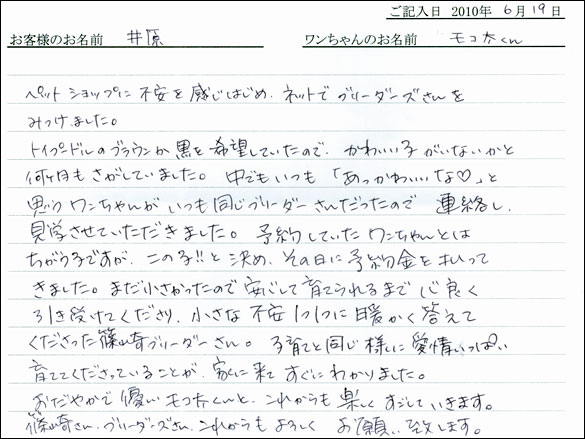 ご記入日 2010年 6月 19日
お客様のお名前 井原 ワンちゃんのお名前 モコ太くん
ペットショップに不安を感じはじめ、ネットでブリーダーズさんを
みつけました。
トイプードルのブラウンか黒を希望していたので、かわいい子がいないかと
何ヶ月もさがしていました。中でもいつも「あっかわいいな♡」と
思うワンちゃんがいつも同じブリーダーさんだったので 連絡し、
見学させていただきました。予約していたワンちゃんとは
ちがう子ですが、この子!!と決め、その日に予約金を払って
きました。まだ小さかったので安心して育てられるまで心良く
引き受けてくださり、小さな不安1つ1つに暖かく答えて
くださった篠崎ブリーダーさん。子育てと同じ様に愛情いっぱい
育ててくださっていることが、家に来てすぐにわかりました。
おだやかで優しいモコ太くんと、これからも楽しくすごしていきます。
篠崎さん、ブリーダーズさん、これからもよろしく お願い致します。